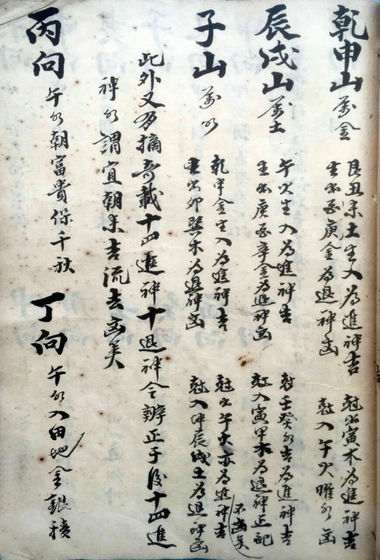 乾申山 属金 艮丑未土生入為進神吉 尅出寅木為進神吉
生出 庚金為退神凶 尅入午火曜 凶
辰戌山 属土 午火生入為進神吉 尅壬癸水吉為進神吉
生出庚酉辛金為退神凶 尅入寅甲木為退神正忌
子山 属水 乾申金生入為進神吉 尅出午火亦為進神吉
生出卯巽木為退神凶 尅入坤辰戌土為退神凶
此外又多摘奇載十四進神十退神全辦正于後十四進
神水謂宜朝来吉流去凶矣
丙向 午水朝富貴保千秋 丁向 午水入田地金銀積